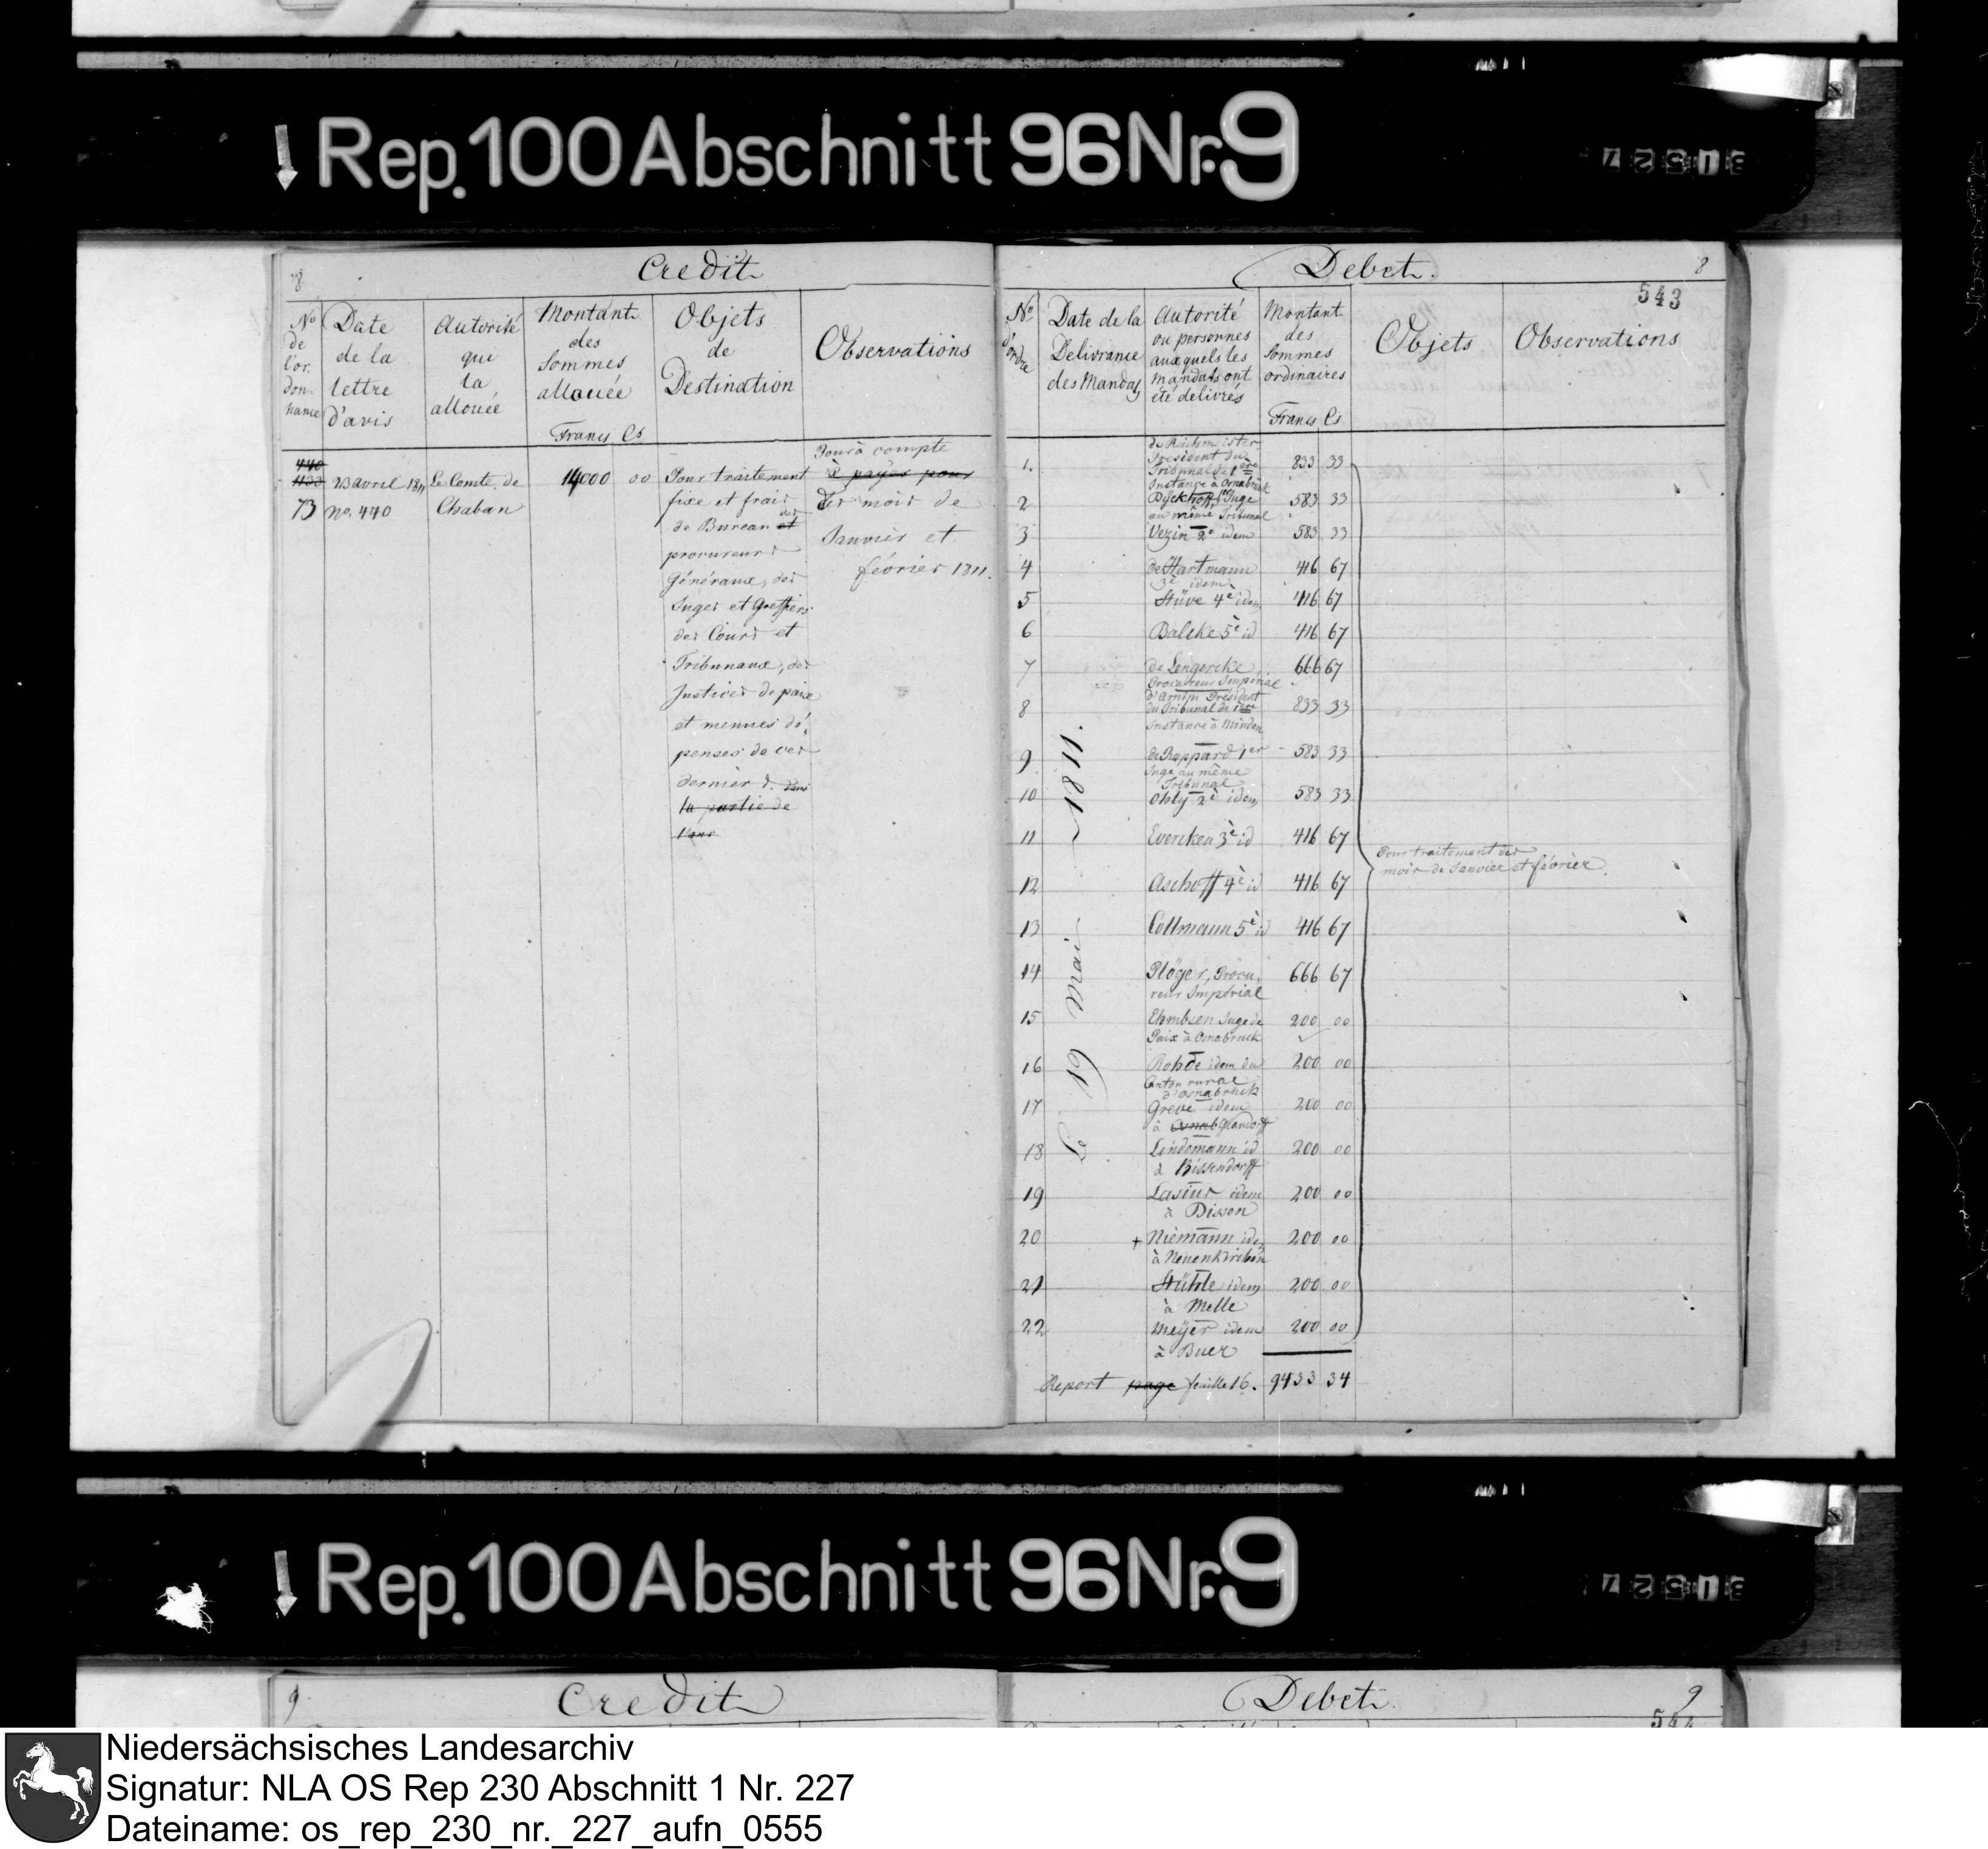 Rep. 100 Abschnitt 96 Nr. 9
31527
8
Credit
No
de
l'or
don-
nance
Date
de la
lettre
d'avis
Autorité
qui
la
allouée
Montant
des
Sommes
allouée
Francs Cs
Objets
de
Destination
Observations
440
1133
73
23 avril 1811
no. 440
Le Comte de
Chaban
14000 00
Pour traitement
fixe et frais
de Bureau et des
procureurs
Généraux, des
Juges et Greffiers
des Cours et
Tribunaux, des
Justices de paix
et menues dé-
penses de ces
derniers. dans
la partie de
Pour à compte
à payer pour
des mois de
Janvier et
février 1811.
Debet.
8
543
No
d'ordre
Date de la
Delivrance
des Mandats
Autorité
ou personnes
auxquels les
mandats ont
été delivrés
Montant
des
Sommes
ordinaires
Francs Cs
Objets
Observations
Le 19 Mai 1811.
1.
President du
Tribunal de 1ere
Instance à Osnabrück
833 33
2
Dyckhoff 1er Juge
au même Tribunal
583 33
3 Vezin 2e idem 583 33
4 de Hartmann 416 67
3e idem
5 Stüve 4e idem 416 67
6 Balcke 5e id 416 67
7 de Lengercke 666 67
Procureur Imperial
8
d'Arnim President
du Tribunal de 1ere
Instance à Minden
833 33
9 de Rappard 1er 583 33
Juge au même
Tribunal
10 Ohly 2e idem 583 33
11 Evercken 3e id 416 67
12 Aschoff 4e id 416 67
13 Collmann 5e id 416 67
14 Plöger, Procu- 666 67
reur Impérial
15 Ehmbsen Juge de 200 00
Paix à Osnabruck
16 Rohde idem du 200 00
Canton rural
d'Osnabruck
17 Greve idem 200 00
à Osnab Glandorff
18 Lindemann id 200 00
à Bissendorff
19 Lasius idem 200 00
à Dissen
20 + Niemann idem 200 00
à Neuenkirchen
21 Stühle idem 200 00
à Melle
22 Meyer idem 200 00
à Buer
Pour traitement des
mois de Janvier et février.
Report page feuille 16. 9433 34
Rep. 100 Abschnitt 96 Nr. 9
31527
9
Credit
Debet
9
544
Niedersächsisches Landesarchiv
Signatur: NLA OS Rep 230 Abschnitt 1 Nr. 227
Dateiname: os_rep_230_nr._227_aufn_0555